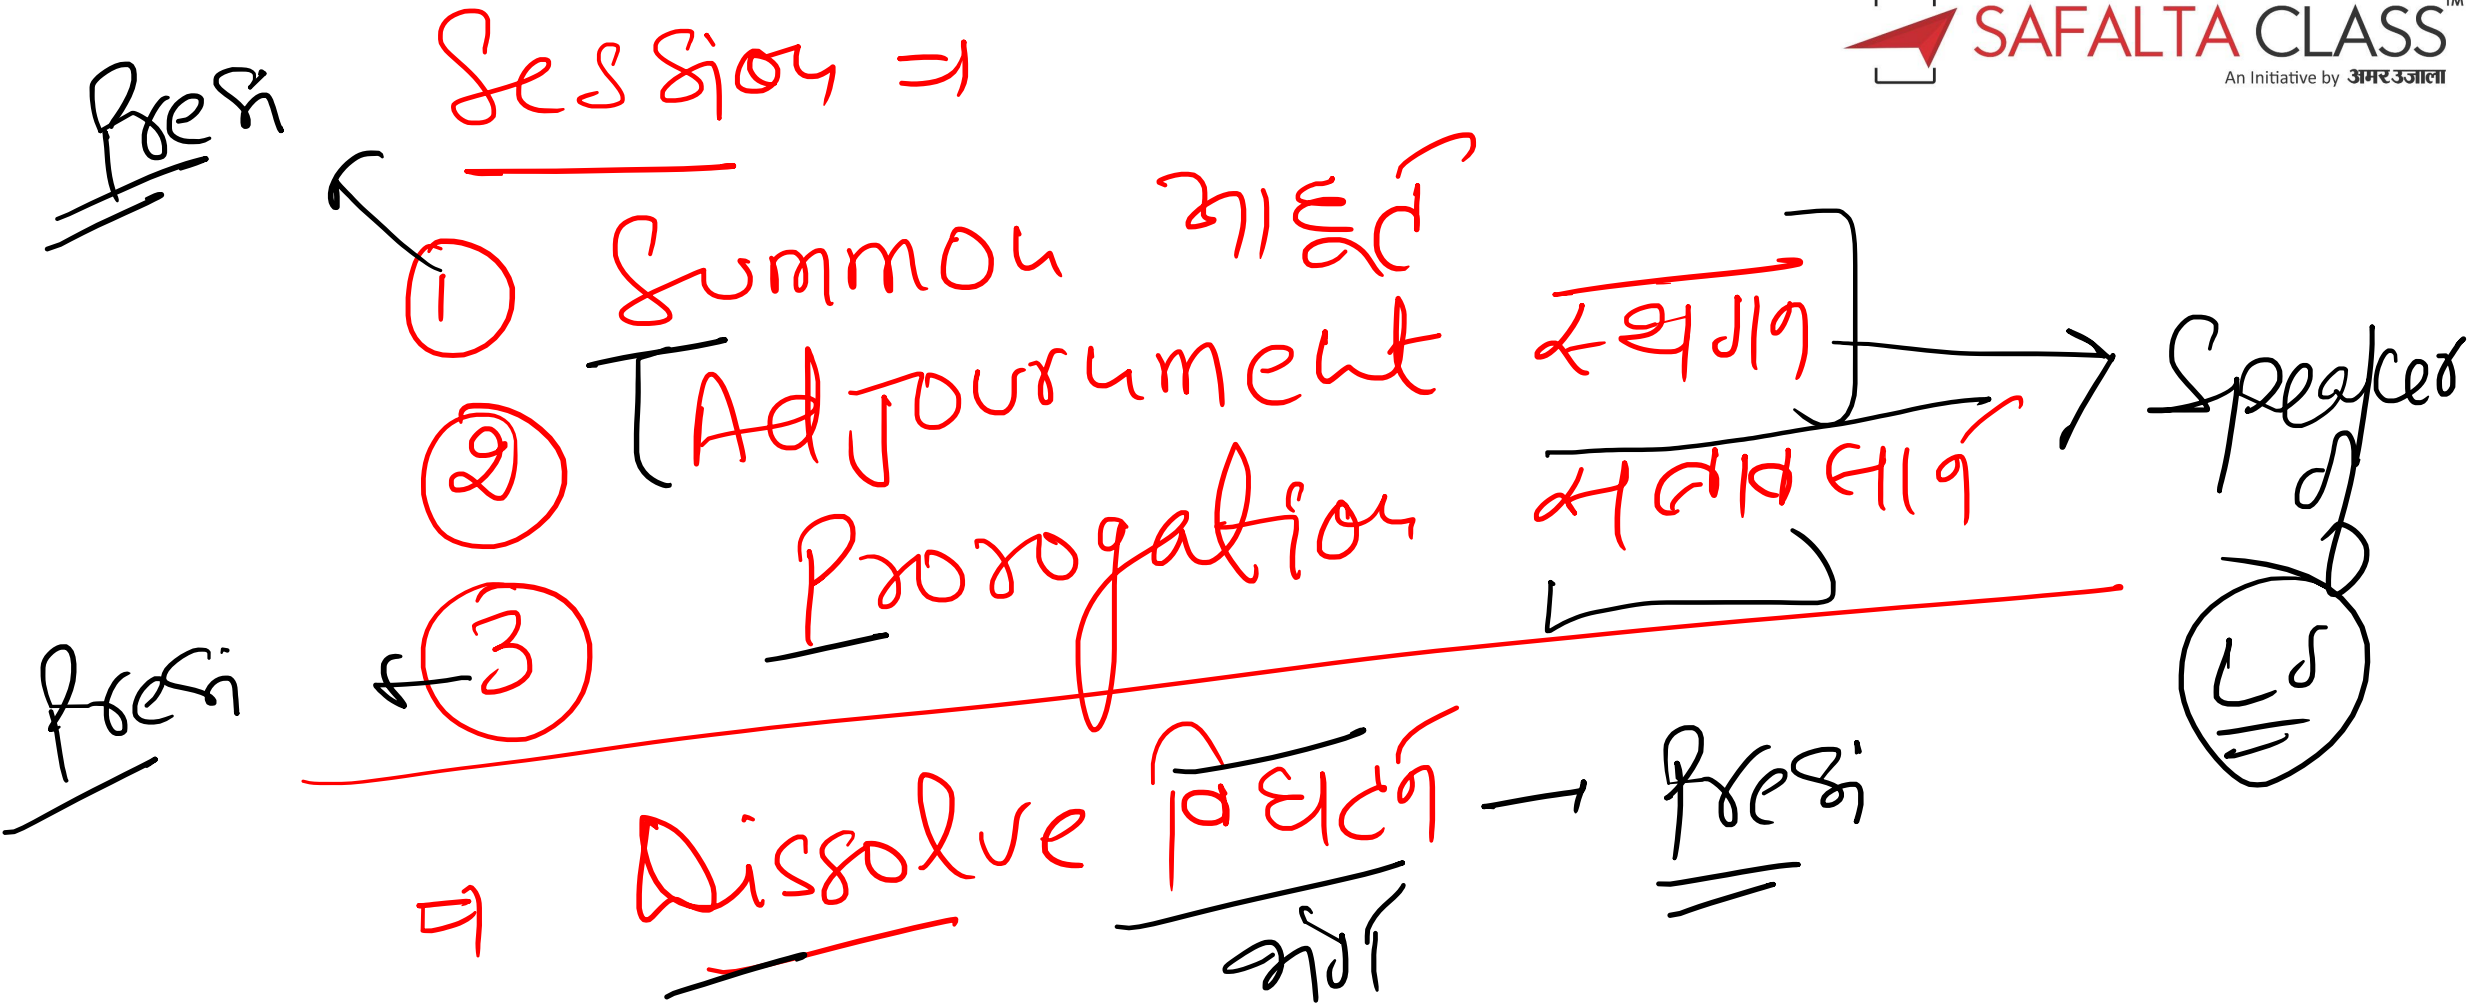 SAFALTA CLASS™
An Initiative by अमर उजाला
Session ⇒
Presi
1 Summon आहूत
2 Adjournment स्थगन
Speaker
LS
3 Prorogation सत्रावसान
Presi
⇒ Dissolve विघटन → Presi
भंग